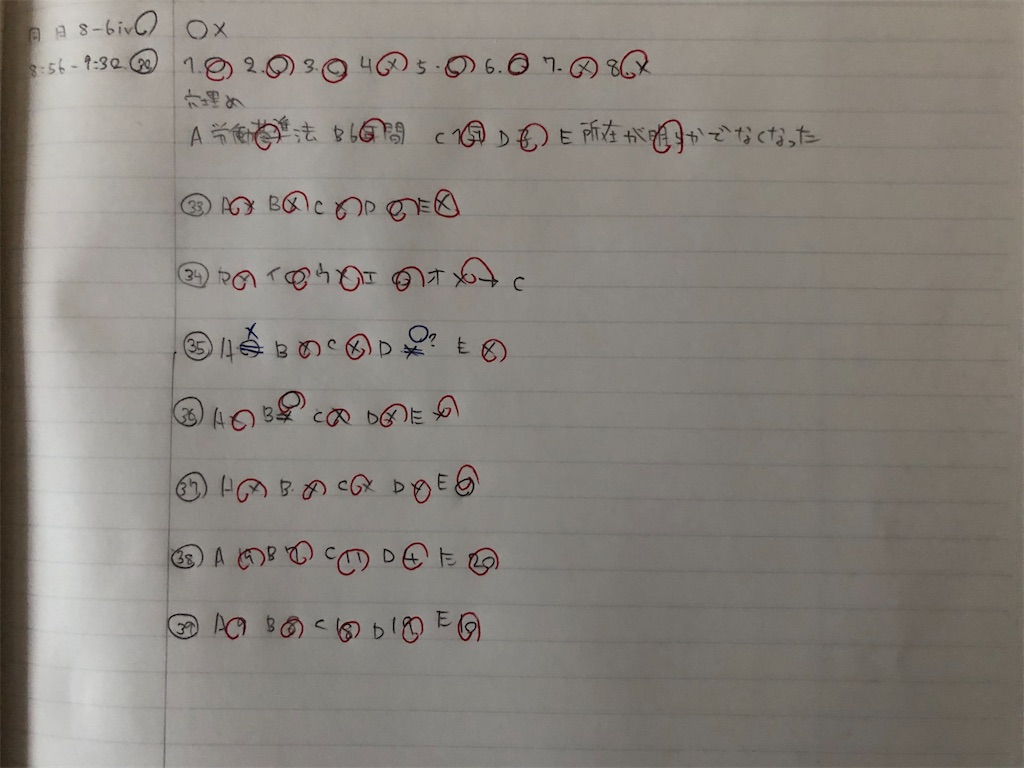 月 日 8-6iv ○×
8:56-9:32 1.○ 2.○ 3.○ 4× 5.○ 6.○ 7.× 8×
穴埋め
A 労働基準法 B 6 間 C D E 所在が明らかでなくなった
㉝ A× B× C× D○ E×
㉞ ア○ イ○ ウ× エ○ オ×→C
㉟ A× B C× D○? E×
㊱ A○ B○ C× D× E×
㊲ A× B× C× D E○
㊳ A B C 11 D 4 E 20
㊴ A 9 B 8 C 18 D E 9